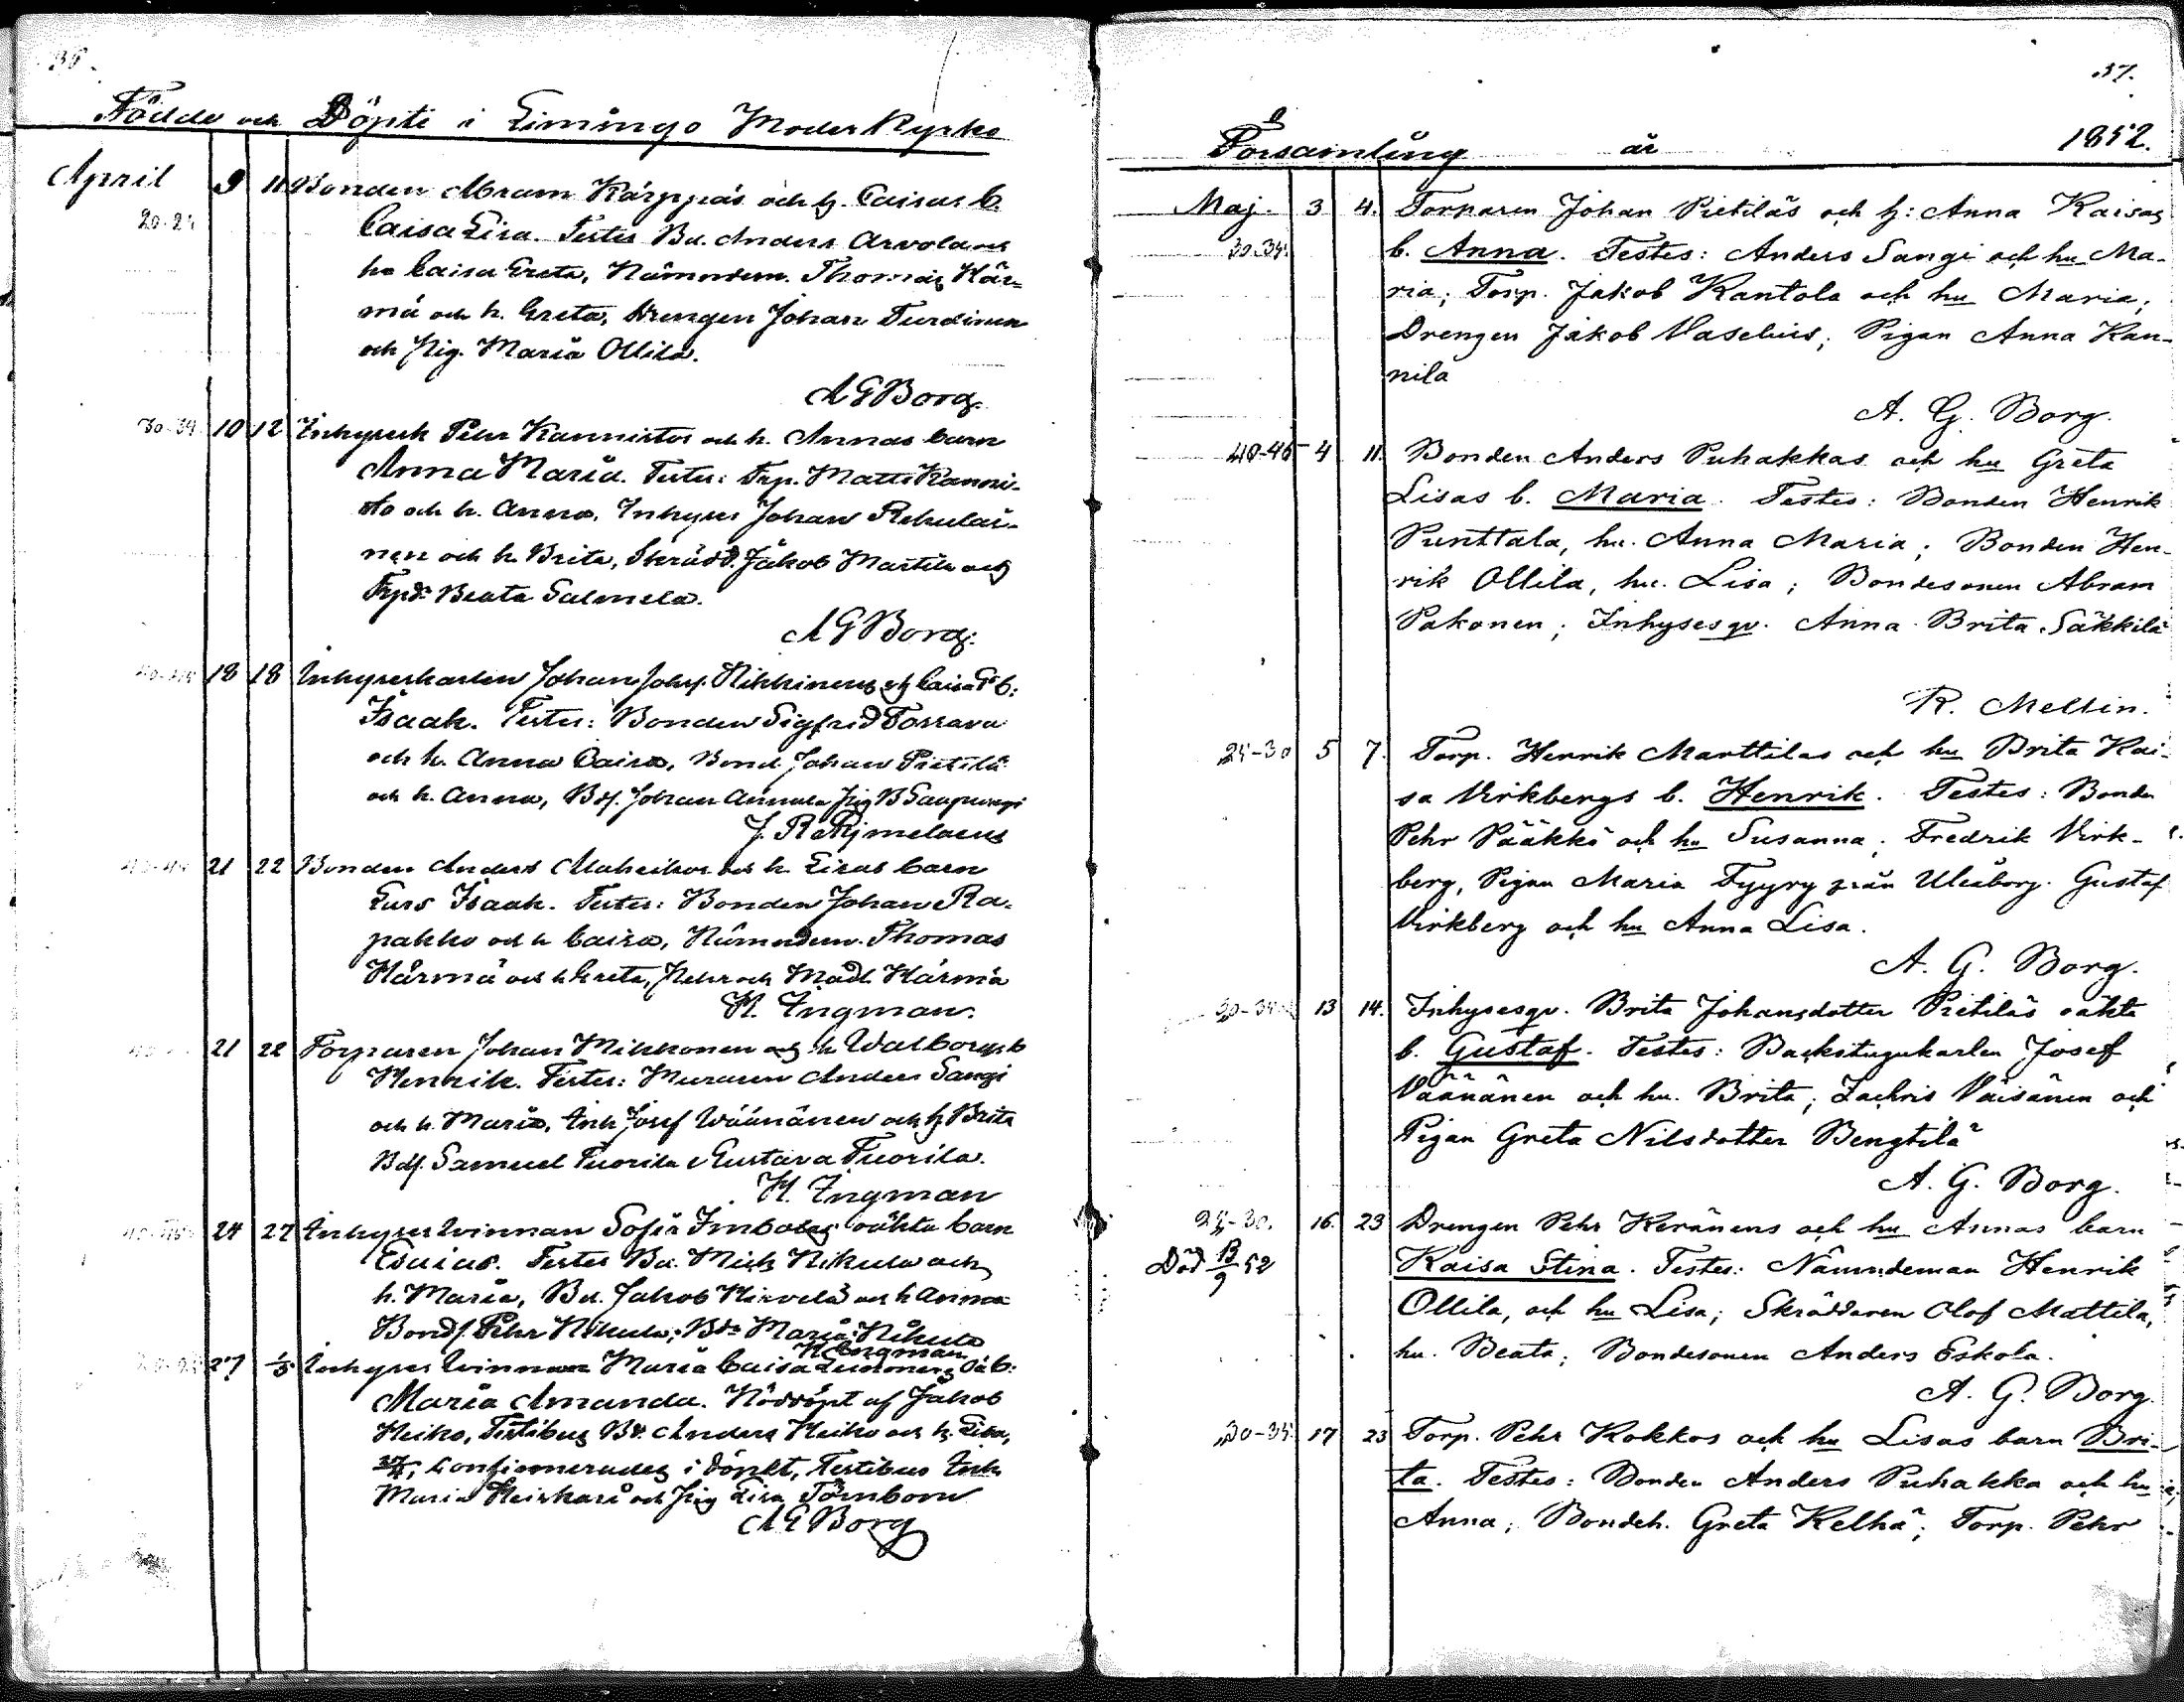 36.
Födde och Döpte i Limingo Moder Kyrko
April 9 11 Bonden Abram Kärppäs och h. Caisas b.
20-24 Caisa Lisa. Testes Bu. Anders Arvola och
hu Caisa Greta, Nämndem. Thomas Här-
mä och h. Greta, Drengen Johan Turdinen
och Pig. Maria Ollila.
A G Borg.
30-34 10 12 Inhysesk Pehr Kannistos och h. Annas barn
Anna Maria. Testes: Trp. Matts Kanni-
sto och h. Anna, Inhyses Johan Rehulai-
nen och h. Brita, Skrädd. Jakob Martila och
Trpd. Beata Salmela.
A G Borg.
18 18 Inhyseskarlen Johan Johss. Mikkinens och Caisas b:
Isaak. Testes: Bonden Sigfrid Torrava
och h. Anna Caisa, Bond. Johan Pietilä
och h. Anna, Bds. Johan Annala Pig B Saupungi
21 22 Bonden Anders Maheikos och h. Lisas barn
Lars Isaak. Testes: Bonden Johan Ra-
pakko och h Caisa, Nämndem. Thomas
Härmä och h Greta, Pehr och Madl. Härmä
H. Ingman.
21 22 Torparen Johan Mikkonen och h Walborgs b
Henrik. Testes: Muraren Anders Sangi
och h. Maria, Inh Josef Wäänänen och h Brita
Bds. Samuel Tuorila Gustava Tuorila.
H. Ingman
24 27 Inhyseskvinnan Sofia oäkta barn
Esaias. Testes Bu. Mich Nikula och
h. Maria, Bu. Jakob Hirvelä och h Anna
Bonds. Pehr Nikula, Bdr Maria Nikula
H. Ingman
27 1/5 Inhyses kvinnan Maria Caisa oä b:
Maria Amanda. Nöddöpt af Jakob
Heiko, Testibus Bu. Anders Heiko och h. Lisa,
confirmerades i döpet, Testibus Inh.
Maria Heiskari och Pig Lisa Törnbom
A G Borg
37.
Församling år 1852.
Maj. 3 4. Torparen Johan Pietiläs och h: Anna Kaisas
30-34. b. Anna. Testes: Anders Sangi och hu Ma-
ria; Torp. Jakob Kantola och hu Maria;
Drengen Jakob Vaselius; Pigan Anna Kan-
nila
A. G. Borg.
40-45 4 11. Bonden Anders Puhakkas och hu Greta
Lisas b. Maria. Testes: Bonden Henrik
Punttala, hu. Anna Maria; Bonden Hen-
rik Ollila, hu. Lisa; Bondesonen Abram
Pakonen; Inhysesqv. Anna Brita Säkkilä
R. Mellin.
24-30 5 7. Torp. Henrik Marttilas och hu Brita Kai-
sa Virkbergs b. Henrik. Testes: Bonden
Pehr Pääkkö och hu Susanna; Fredrik Virk-
berg, Pigan Maria Tyyry från Uleåborg. Gustaf
Virkberg och hu Anna Lisa.
A. G. Borg.
30-34 13 14. Inhysesqv. Brita Johansdotter Pietiläs oäkta
b. Gustaf. Testes: Backstugukarlen Josef
Väänänen och hu. Brita; Zachris Väisänen och
Pigan Greta Nilsdotter Bengtilä
A. G. Borg.
25-30. 16. 23 Drengen Pehr Keränens och hu Annas barn
Död 13/9 52 Kaisa Stina. Testes: Nämndeman Henrik
Ollila, och hu Lisa; Skräddaren Olof Mattila,
hu. Beata; Bondesonen Anders Eskola.
A. G. Borg.
30-35 17 23 Torp. Pehr Kokkos och hu Lisas barn Bri-
ta. Testes: Bonden Anders Puhakka och hu
Anna; Bondeh. Greta Kelhä; Torp. Pehr